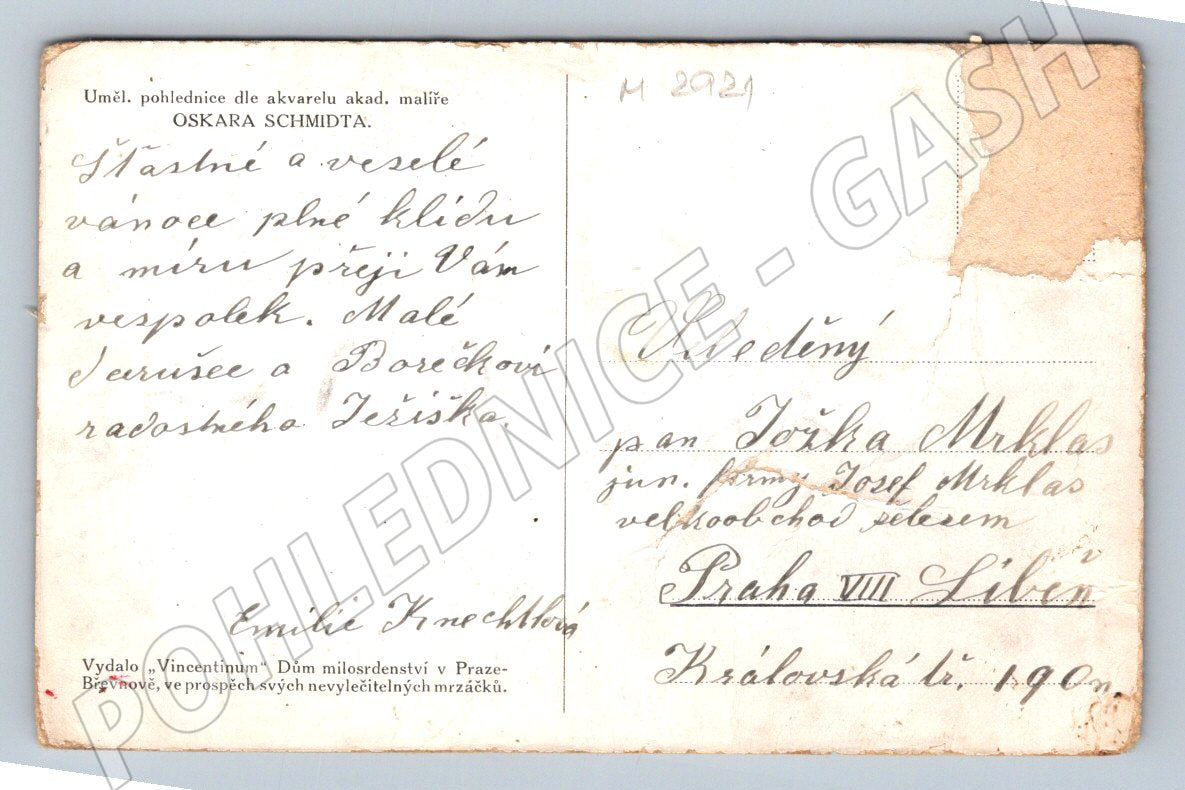 Uměl. pohlednice dle akvarelu akad. malíře
OSKARA SCHMIDTA.
Šťastné a veselé
vánoce plné klidu
a míru přeji Vám
vespolek. Malé
Jarušce a Borečkovi
radostného Ježíška.
Emilie Knechtlová
Vydalo „Vincentinum“ Dům milosrdenství v Praze-
Břevnově, ve prospěch svých nevyléčitelných mrzáčků.
M 2921
Svleděný
pan Jožka Mrklas
jun. firmy Josef Mrklas
velkoobchod železem
Praha VIII Libeň
Královská tř. 190n.
POHLEDNICE - GASH